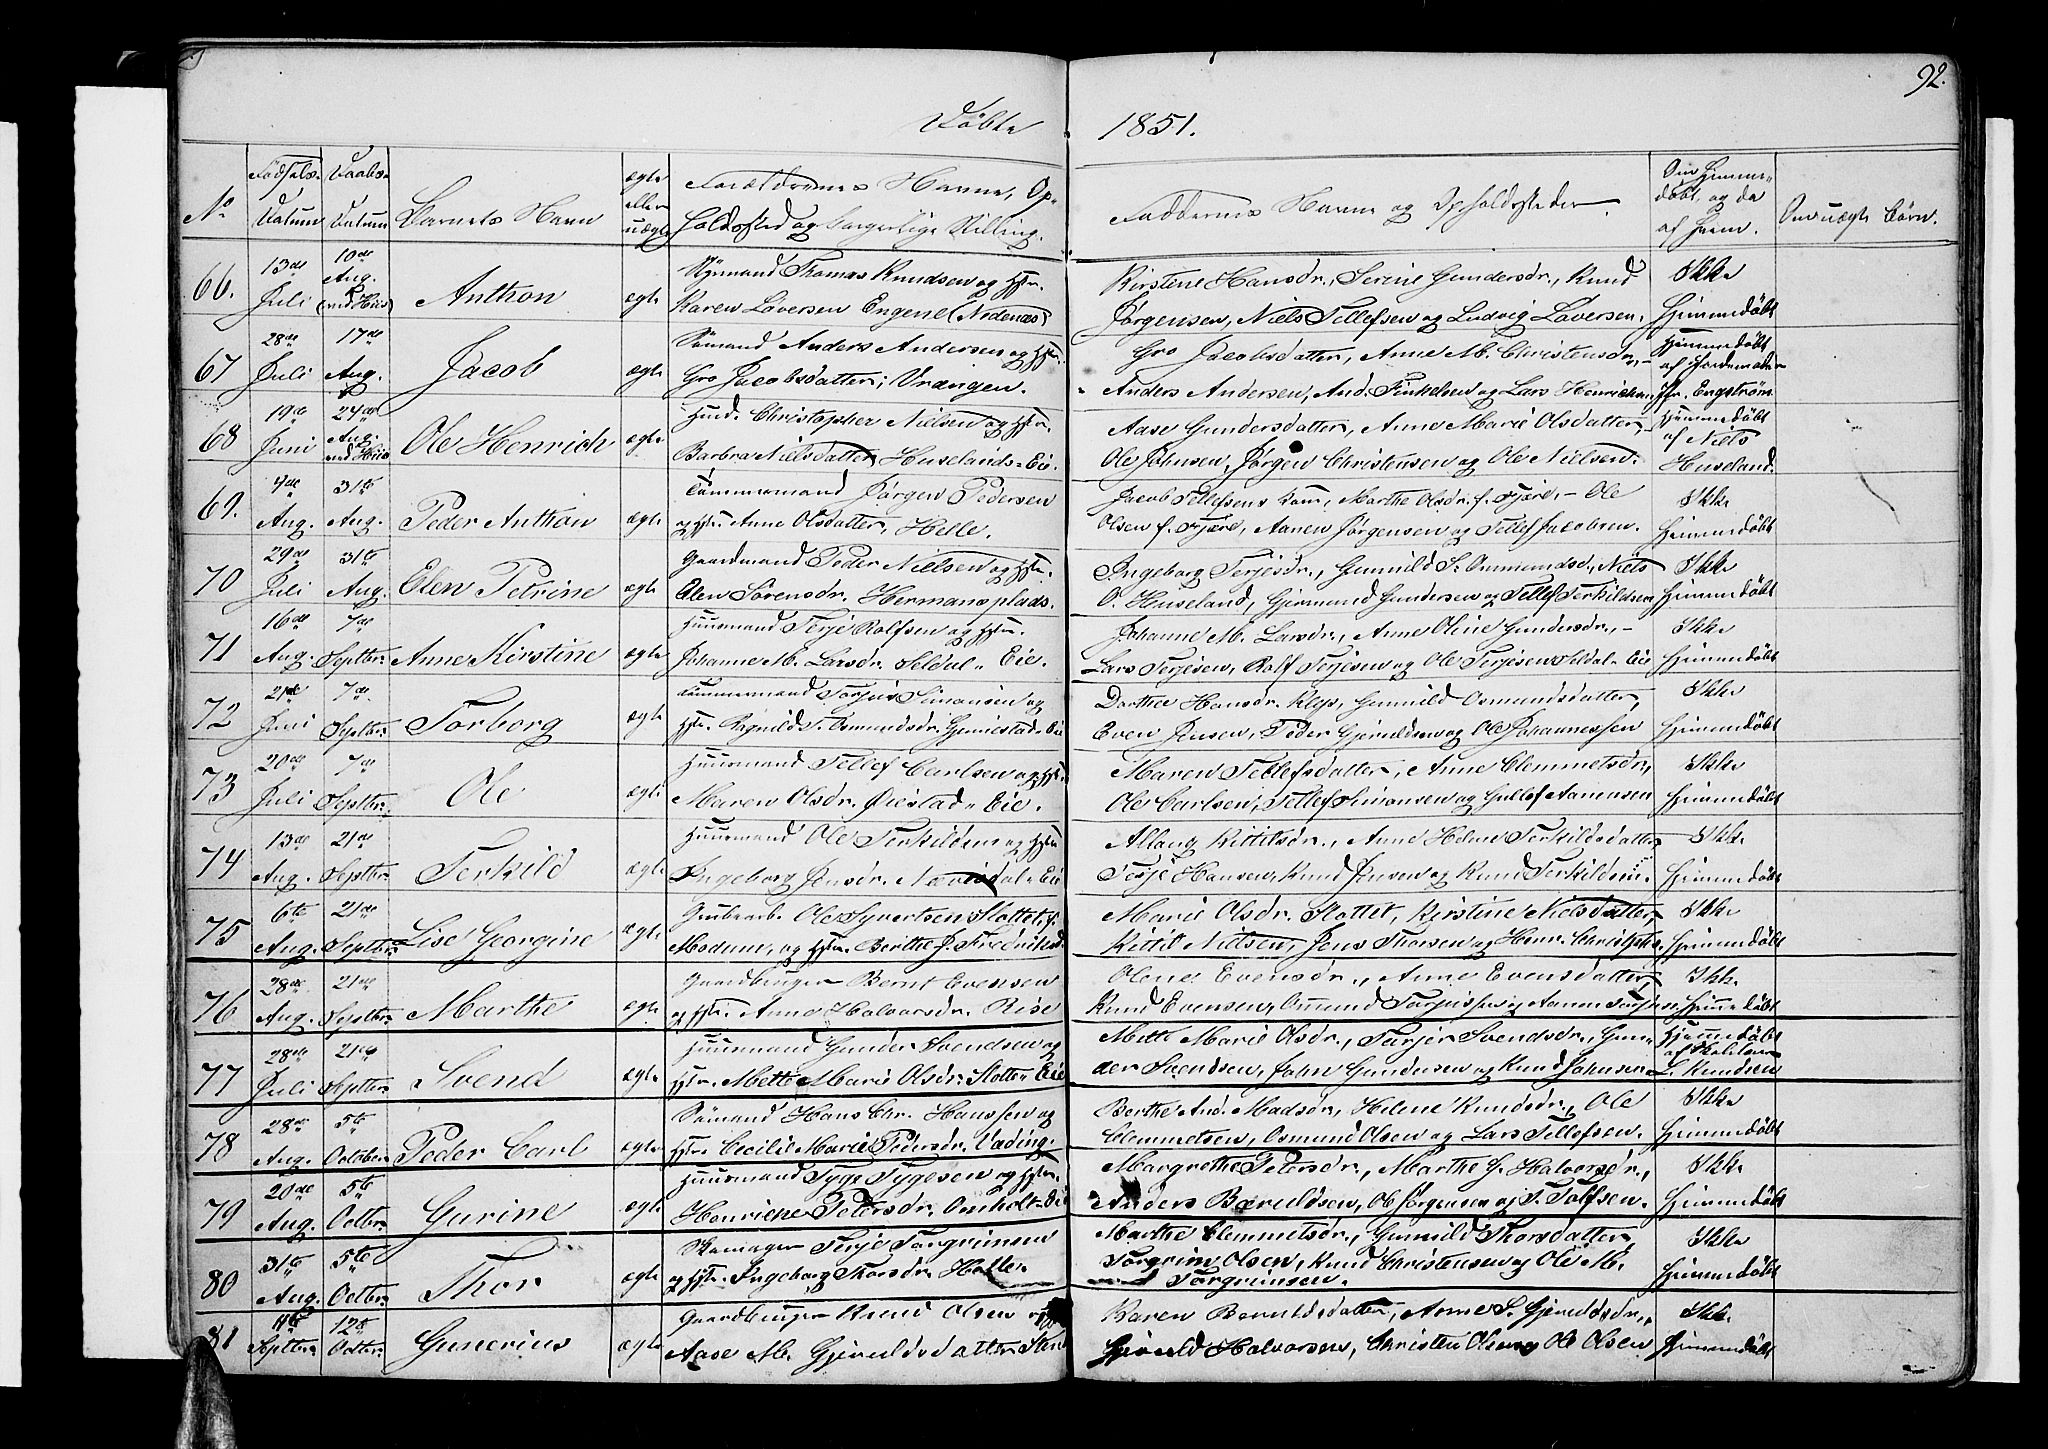 92.
Døbte 1851.
No
Fødsels-
Datum
Daabs-
Datum
Barnets Navn
ægte
eller
uægte
Forældrenes Navne, Op-
holdssted og borgerlige Stilling.
Faddernes Navne og Opholdssteder.
Om hjemme-
døbt, og da
af hvem.
Om uægte Børn.
66.
13de
Juli
10de
Aug.
Anthon
ægte
Thomas Knudsen og Hstr.
Karen Løversen Engene (Nedenæs)
Kirstene Hansdr., Serine Gundersdr., Knud
Jørgensen, Niels Tellefsen og Ludvig Løversen.
Ikke
hjemmedøbt
67
28de
Juli
17de
Aug.
Jacob
ægte
Sømand Anders Andersen og Hstr.
Gro Jacobsdatter, Vrængen.
Gro Jacobsdatter, Anne M. Christensdr.,
Anders Andersen, And. Finkelsen og Lars Henriksen
Hjemmedøbt
af Jordemoder
Jfr. Engstrøm
68
19de
Juni
24de
Aug.
Ole Henrich
ægte
Huusm. Christopher Nielsen og Hstr.
Barbra Nielsdatter, Huselands-Eie.
Aase Gundersdatter, Anne Marie Olsdatter,
Ole Johnsen, Jørgen Christensen og Ole Nielsen.
Hjemmedøbt
af Niels
Huseland.
69.
4de
Aug.
31te
Aug.
Peder Anthon
ægte
Tømmermand Jørgen Pedersen
og Hstr. Anne Olsdatter, Helle.
Jacob Tellefsens Kone, Marthe Olsdr. f. Fjære, - Ole
Olsen f. Fjære, Aanen Jørgensen og Tellef Jacobsen.
Ikke
hjemmedøbt
70
29de
Juli
31te
Aug.
Elen Petrine
ægte
Gaardmand Peder Nielsen og Hstr.
Elen Sørensdr. Hermansplads.
Ingeborg Terjesdr., Gunnild S. Osmundsd., Niels
O. Huseland, Gjermund Gundersen og Tellef Terkildsen
Ikke
hjemmedøbt
71
16de
Aug.
7de
Septbr.
Anne Kirstine
ægte
Huusmand Terje Rolfsen og Hstr.
Johanne M. Larsdr. Seldal-Eie.
Johanne M. Larsdr., Anne Oline Gundersdr., -
Lars Terjesen, Rolf Terjesen og Ole Terjesen Seldal-Eie
Ikke
hjemmedøbt
72
21de
Juni
7de
Septbr.
Torborg
ægte
Tømmermand Torjus Simonsen og
Hstr. Ragnild T. Osmundsdr. Gjennestad-Eie
Dorthee Hansdr. Klep, Gunnild Osmundsdatter,
Even Jensen, Peder Gjeruldsen og Ole Johannessen
Ikke
hjemmedøbt
73
20de
Juli
7de
Septbr.
Ole
ægte
Huusmand Tellef Carlsen og Hstr.
Maren Olsdr. Øiestad-Eie.
Maren Tellefsdatter, Anne Clemmetsdr.,
Ole Carlsen, Tellef Simonsen og Gullef Aanonsen
Ikke
hjemmedøbt
74
13de
Aug.
21de
Septbr.
Terkild
ægte
Huusmand Ole Terkildsen og Hstr.
Ingeborg Jensdr. Nævisdal-Eie
Kittilsdr., Anne Helene Terkildsdatter
Terje Hansen, Knud Jensen og Knud Terkildsen.
Ikke
hjemmedøbt
75
6te
Aug.
21de
Septbr.
Lise Georgine
ægte
Grubearb. Ole Syvertsen Slottet, f.
Modum, og Hstr. Berthe J. Fredriksd.
Marie Olsdr. Slottet, Kirstine Nielsdatter,
Kittil Nielsen, Jens Thorsen og Henr. Christophs.
Ikke
hjemmedøbt
76
28de
Aug.
21de
Septbr.
Marthe
ægte
Gaardbruger Bernt Evensen
og Hstr. Anne Halvorsdr. Rise
Olene Evensdr., Anne Evensdatter,
Knud Evensen, Osmund Torjussen og Aanon Torjusen.
Ikke
hjemmedøbt
77
28de
Juli
21de
Septbr.
Svend
ægte
Huusmand Gunder Svendsen og
Hstr. Mette Marie Olsdr. Slotte-Eie
Mette Marie Olsdr., Torjer Svendsdr., Gun-
der Svendsen, John Gundersen og Knud Johnsen
Hjemmedøbt
af Skolelærer
L. Knudsen
78
28de
Aug.
5te
October
Peder Carl
ægte
Sømand Hans Chr. Hanssen og
Hstr. Cecilie Marie Pedersdr. Vading.
Berthe And. Madsdr., Helene Knudsdr., Ole
Clemmetsen, Osmund Olsen og Lars Tellefsen.
Ikke
hjemmedøbt
79
20de
Aug.
5te
Octbr.
Gurine
ægte
Huusmand Tyge Tygesen og Hstr.
Henriene Petersdr. Omholt-Eie
Margrethe Petersdr., Marthe J. Halvorsdr.,
Anders Bæruldsen, Ole Jørgensen og S. Tolfsen.
Ikke
hjemmedøbt
80
31te
Aug.
5te
Octbr.
Thor
ægte
Skomager Terje Torgrimsen
og Hstr. Ingeborg Thorsdr. Helle.
Marthe Clemmetsdr., Gunnild Thorsdatter,
Torgrim Olsen, Knud Christensen og Ole M.
Torgrimsen.
Ikke
hjemmedøbt
81
Septbr.
12te
Octbr.
Gunerius
ægte
Gaardbruger Knud Olsen og Hstr.
Aase M. Gjeruldsdatter
Karen Beruldsdatter, Anne S. Gjeruldsdr.,
Gjeruld Halvorsen, Christen Olsen og Ole Olsen
Ikke
hjemmedøbt